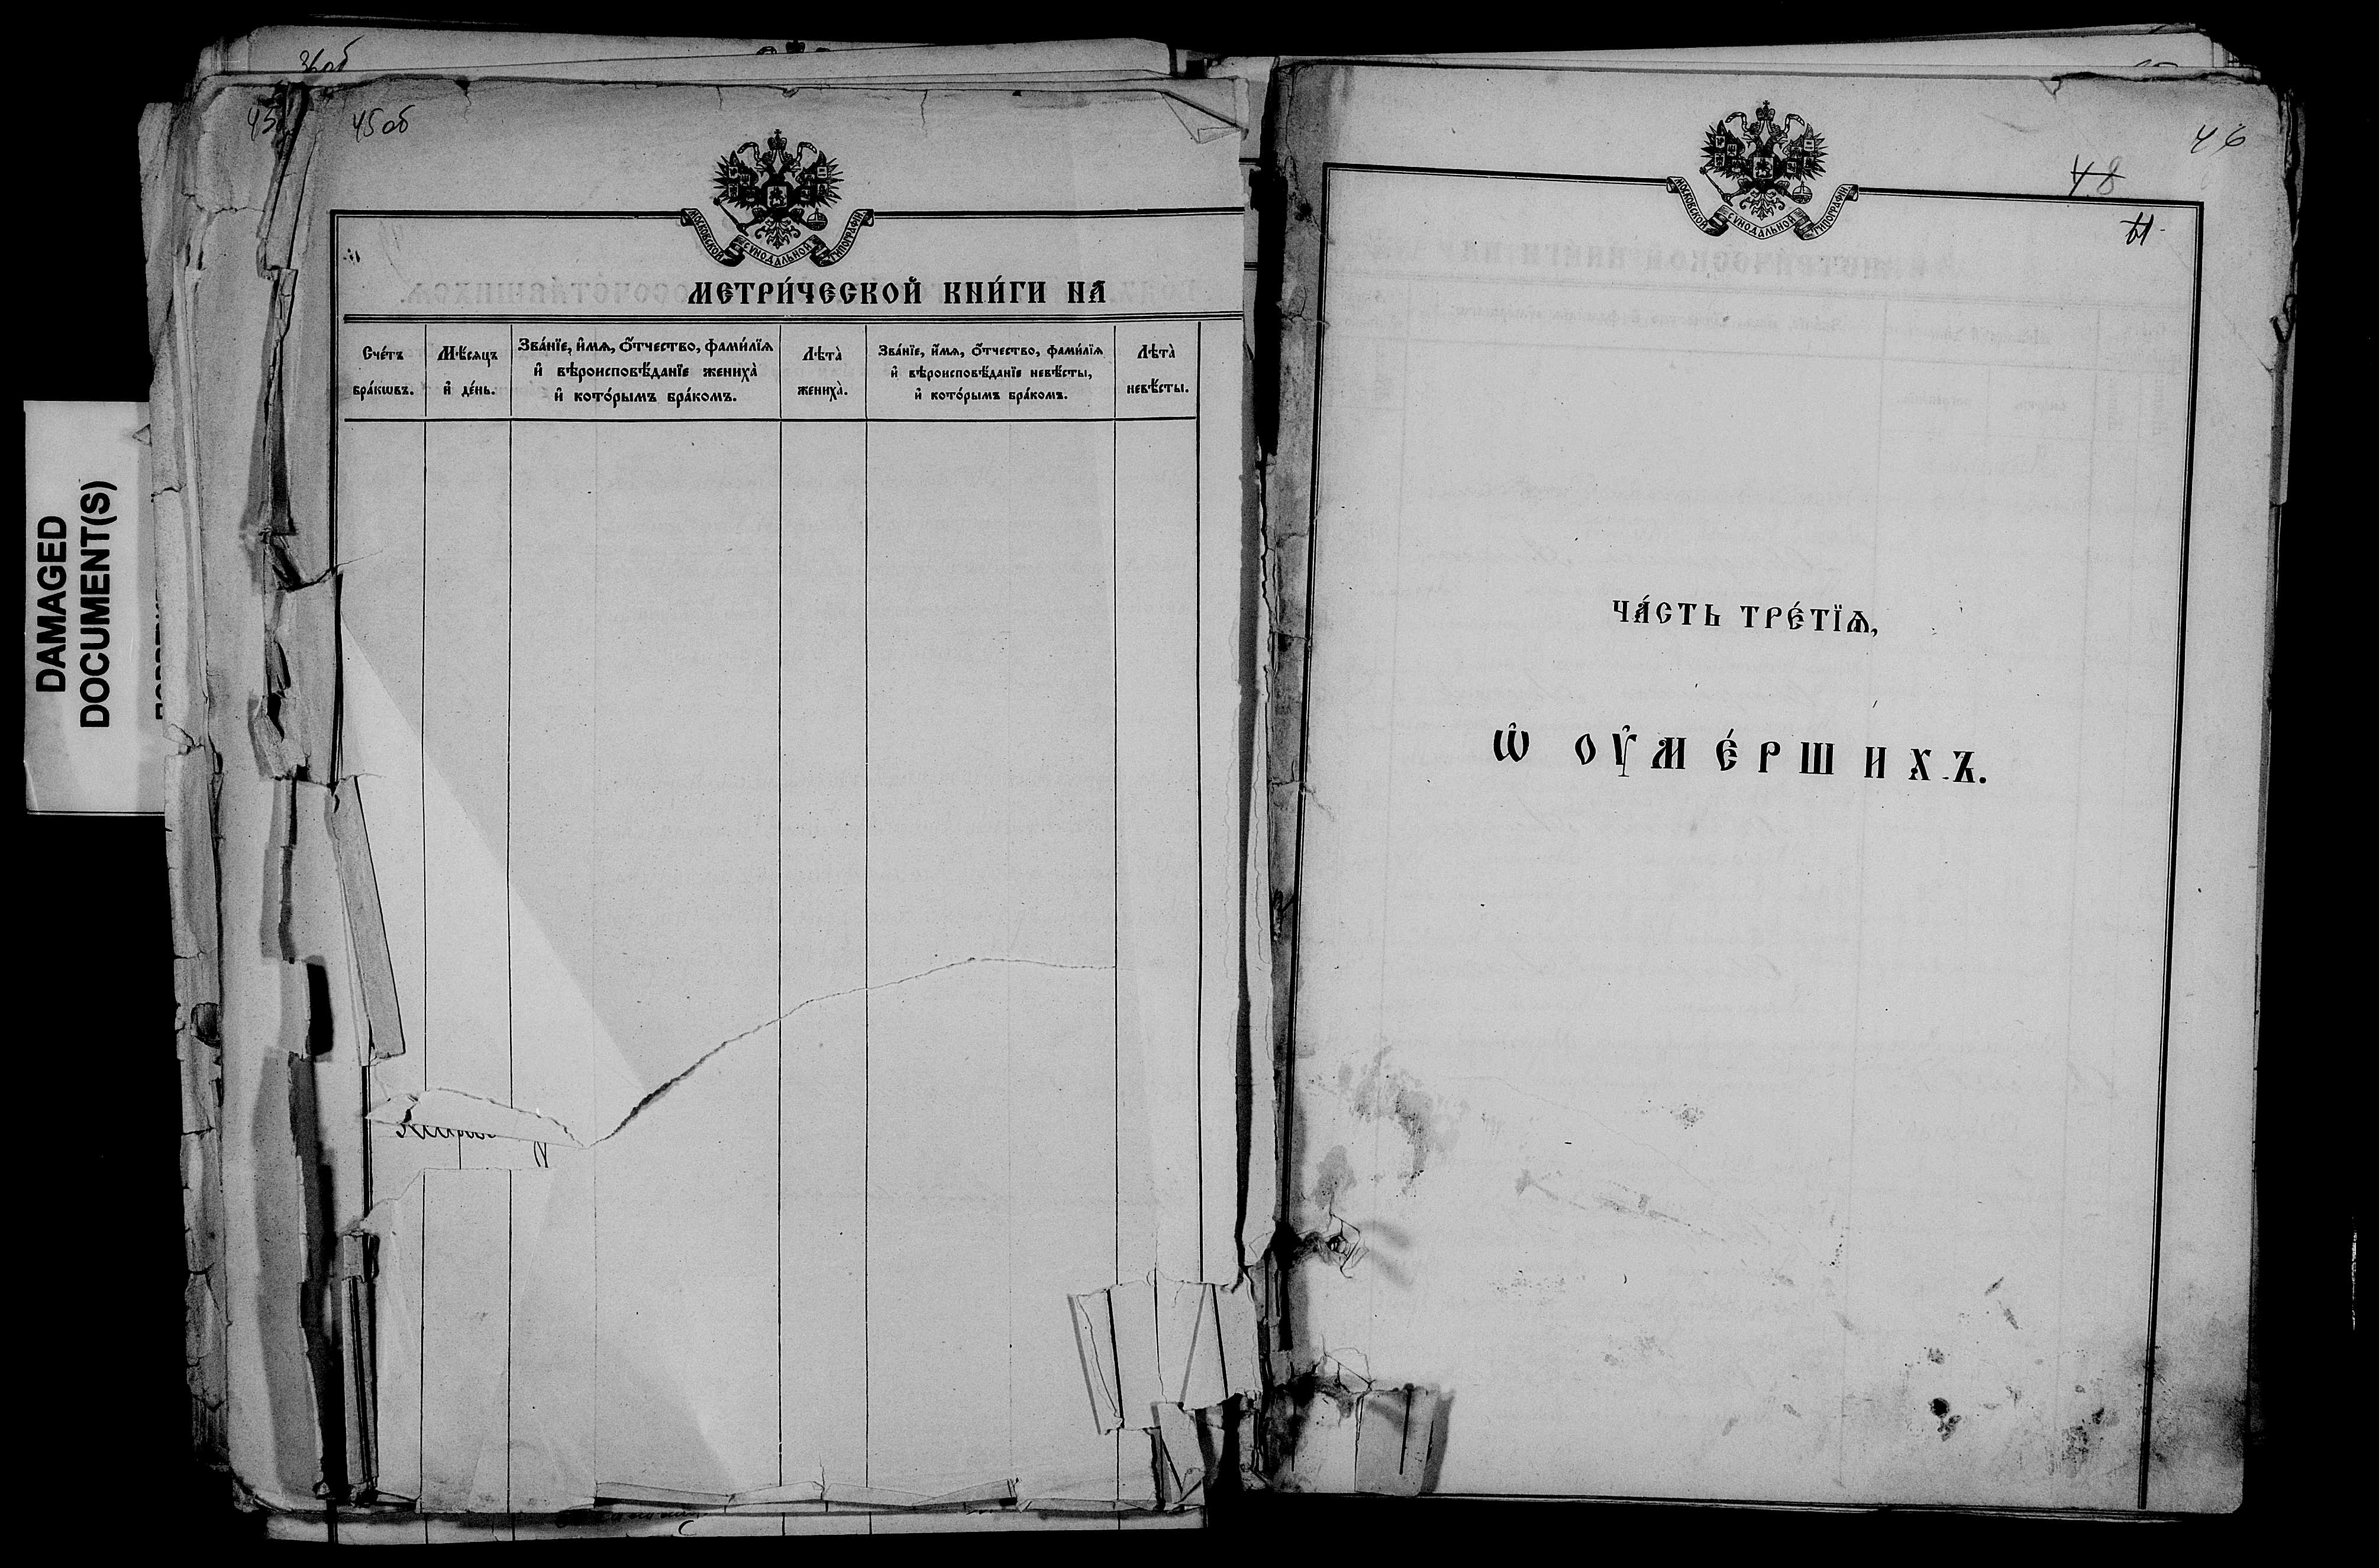 36об
45об
45об
МОСКОВСКОЙ СѴНОДАЛЬНОЙ ТИПОГРАФІИ
МЕТРИ́ЧЕСКОЙ КНИ́ГИ НА
Сче́тъ бра́кѡвъ.
Мѣ́сяцъ и҆ де́нь.
Зва́нїе, и҆́мѧ, ѻ҆́тчество, фами́лїѧ
и҆ вѣроисповѣ́данїе жениха̀
и҆ кото́рымъ бра́комъ.
Лѣта̀ жениха̀.
Зва́нїе, и҆́мѧ, ѻ҆́тчество, фами́лїѧ
и҆ вѣроисповѣ́данїе невѣ́сты,
и҆ кото́рымъ бра́комъ.
Лѣта̀ невѣ́сты.
DAMAGED
DOCUMENT(S)
46
48
МОСКОВСКОЙ СѴНОДАЛЬНОЙ ТИПОГРАФІИ
ЧА́СТЬ ТРЕ́ТЇѦ,
Ѡ҆ ОУ҆МЕ́РШИХЪ.